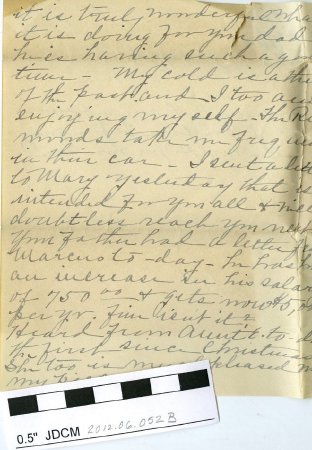 it is truly wonderful what
it is doing for you & dad
hies having such a good
time - My cold is a thing
of the past and I too am
enjoying my self - The Rey
monds take me frequ
in their car - I sent a let
to Mary yesterday that is
intended for you all & will
doubtless reach you next
Your Father had a letter fr
Marcus to-day. He has
an increase in his salar
of 750 00 & gets now $5,0
per yr. Fine isn't it?
Heard from Aunt to-d
the first since Christmas
She too is much pleased
my
0.5" JDCM 2012.06.052B